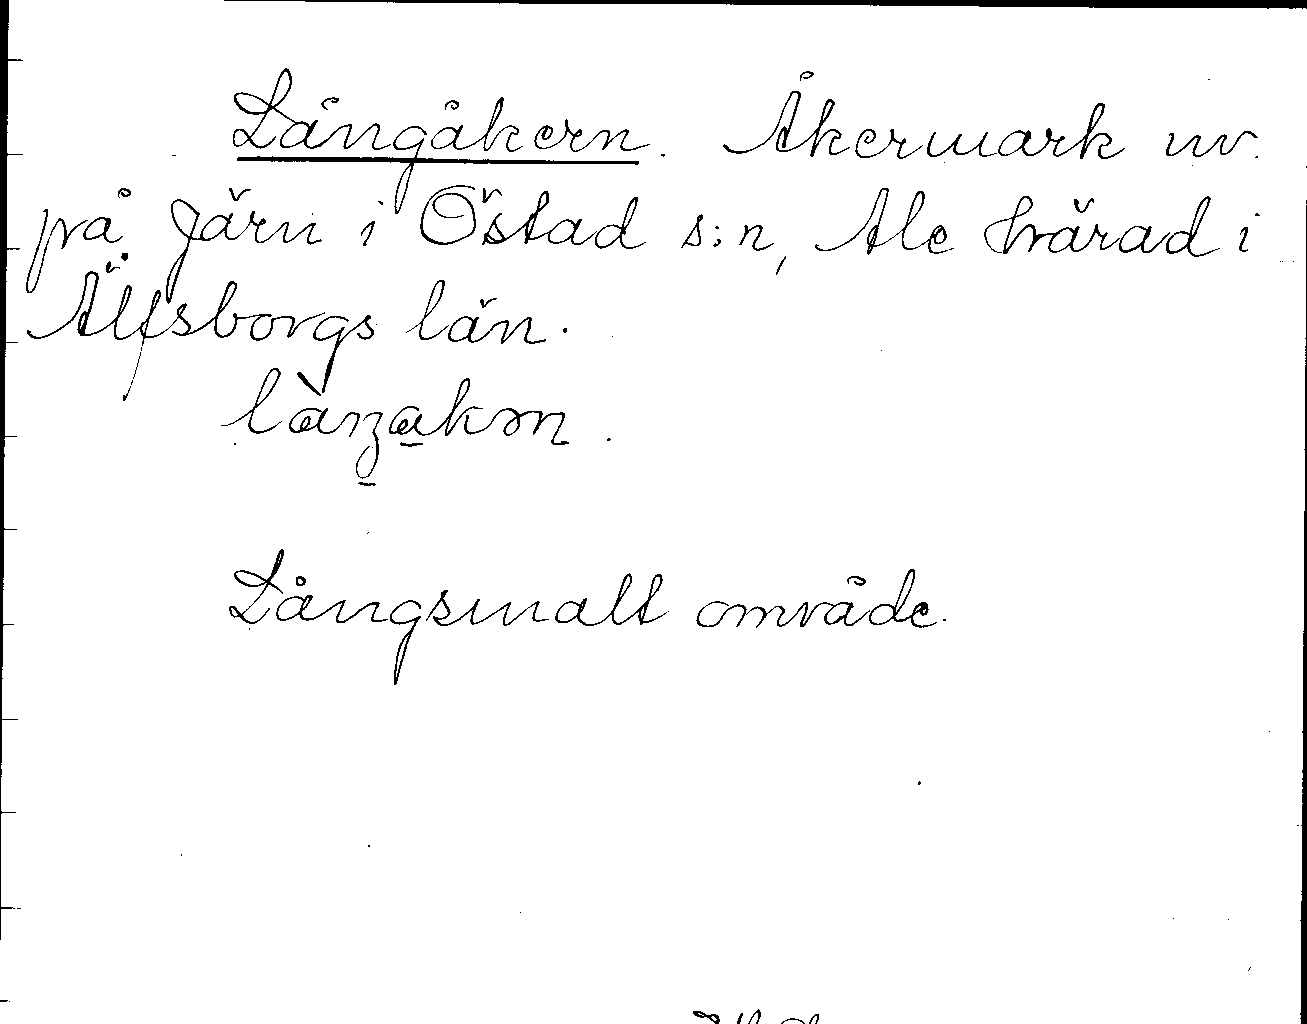 Långåkern. Åkermark nv.
på Järn i Östad s:n, Ale härad i
Älfsborgs län.
Långsmalt område.